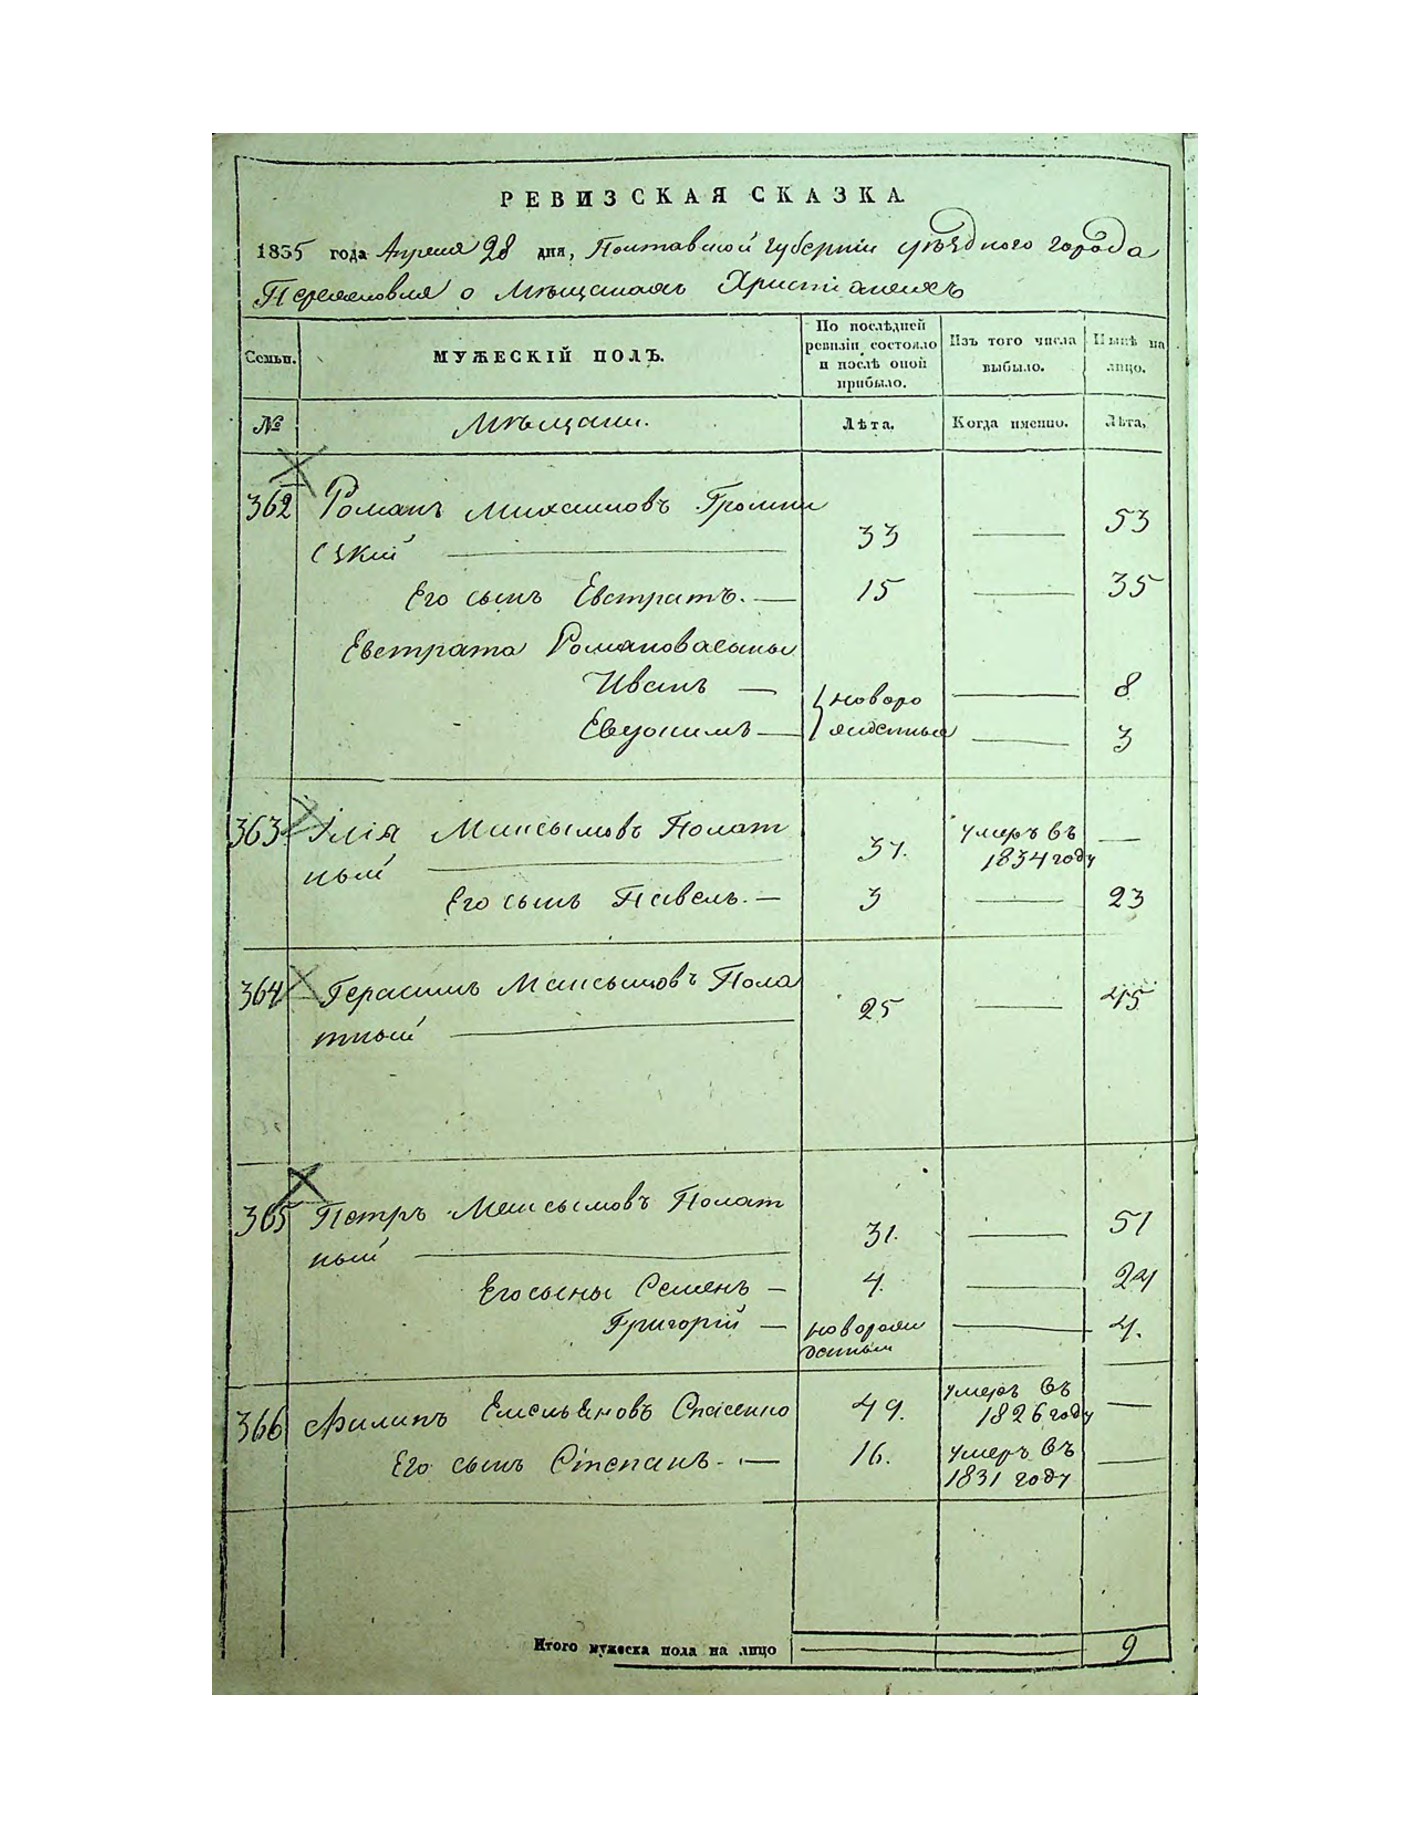 РЕВИЗСКАЯ СКАЗКА
1835 года Апреля 28 дня, Полтавской губернiи уѣздного города
Переяславля о Мѣщанахъ Христiанехъ
Семьи.
МУЖЕСКIЙ ПОЛЪ.
По послѣдней ревизiи состояло и послѣ оной прибыло.
Изъ того числа выбыло.
Нынѣ на лицо.
№
Мѣщани.
Лѣта.
Когда именно.
Лѣта.
362 Романъ Михаиловъ
33 53
Его сынъ Евстратъ. 15 35
Евстрата Романова сыны
Иванъ новоро 8
Евѳимъ жденные 3
363 Илiя Максымовъ Полат
ный 37. умеръ въ 1834 году
Его сынъ Павелъ. 3 23
364 Герасимъ Максымовъ Пола
тный 25 45
365 Петръ Максымовъ Полат
ный 31. 51
Его сыны Семенъ 4. 24
Григорiй новорож 4.
денный
366 Филипъ Емельяновъ 49. умеръ въ 1826 году
Его сынъ Степанъ. 16. умеръ въ 1831 году
Итого мужеска пола на лицо 9